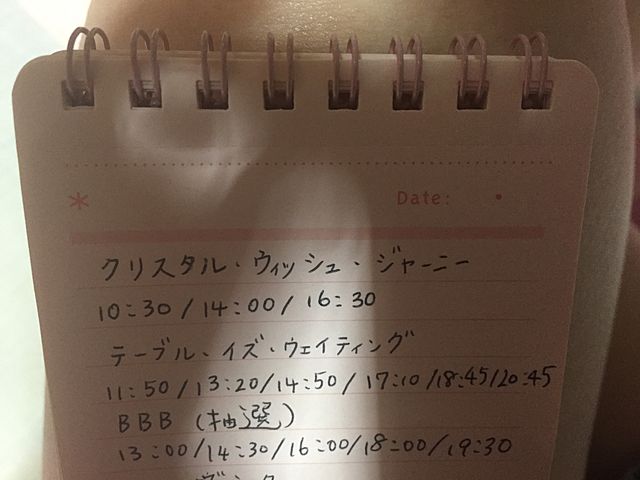 * Date: •
クリスタル・ウィッシュ・ジャーニー
10:30/14:00/16:30
テーブル・イズ・ウェイティング
11:50/13:20/14:50/17:10/18:45/20:45
BBB (抽選)
13:00/14:30/16:00/18:00/19:30